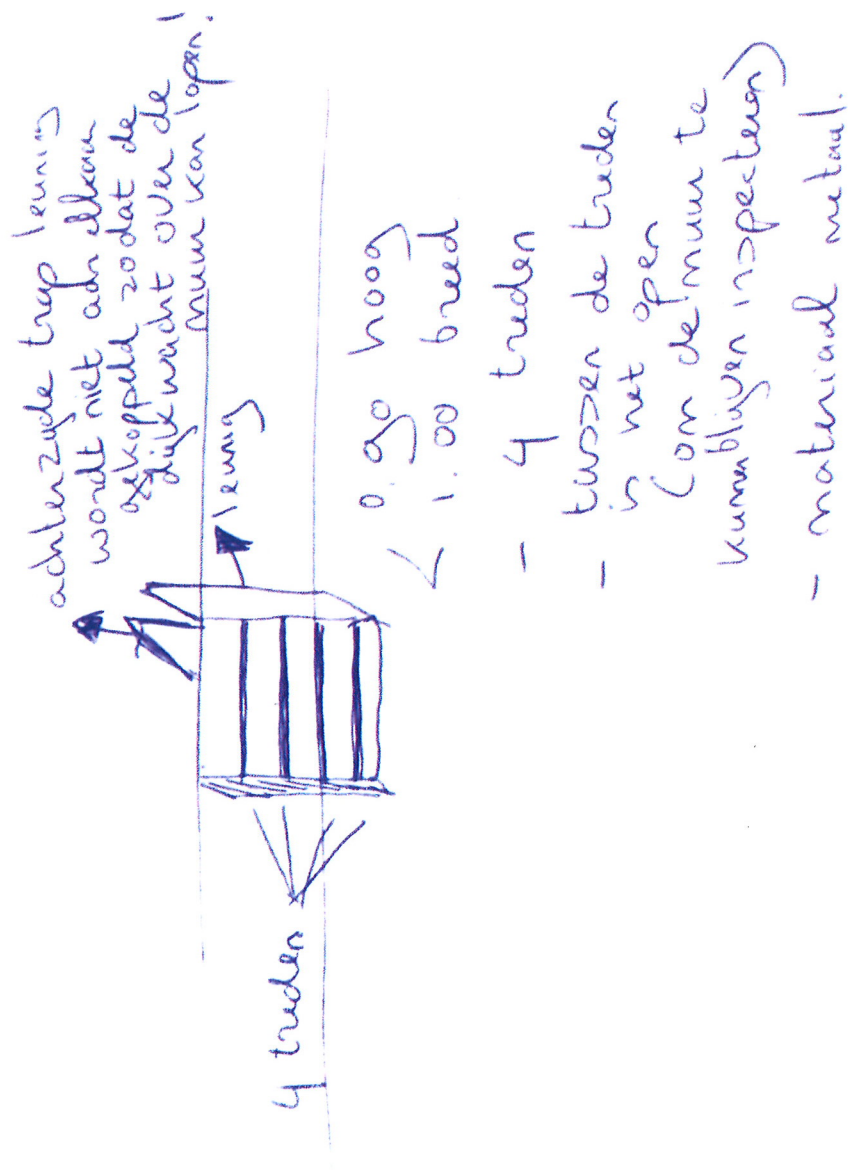 achterzijde trap leuning
wordt niet aan elkaar
gekoppeld zodat de
dijkwacht over de
muur kan lopen!
leunig
4 treden
0.90 hoog
1.00 breed
- 4 treden
- tussen de treden
is het open
(om de muur te
kunnen blijven inspecteren)
- materiaal metaal.